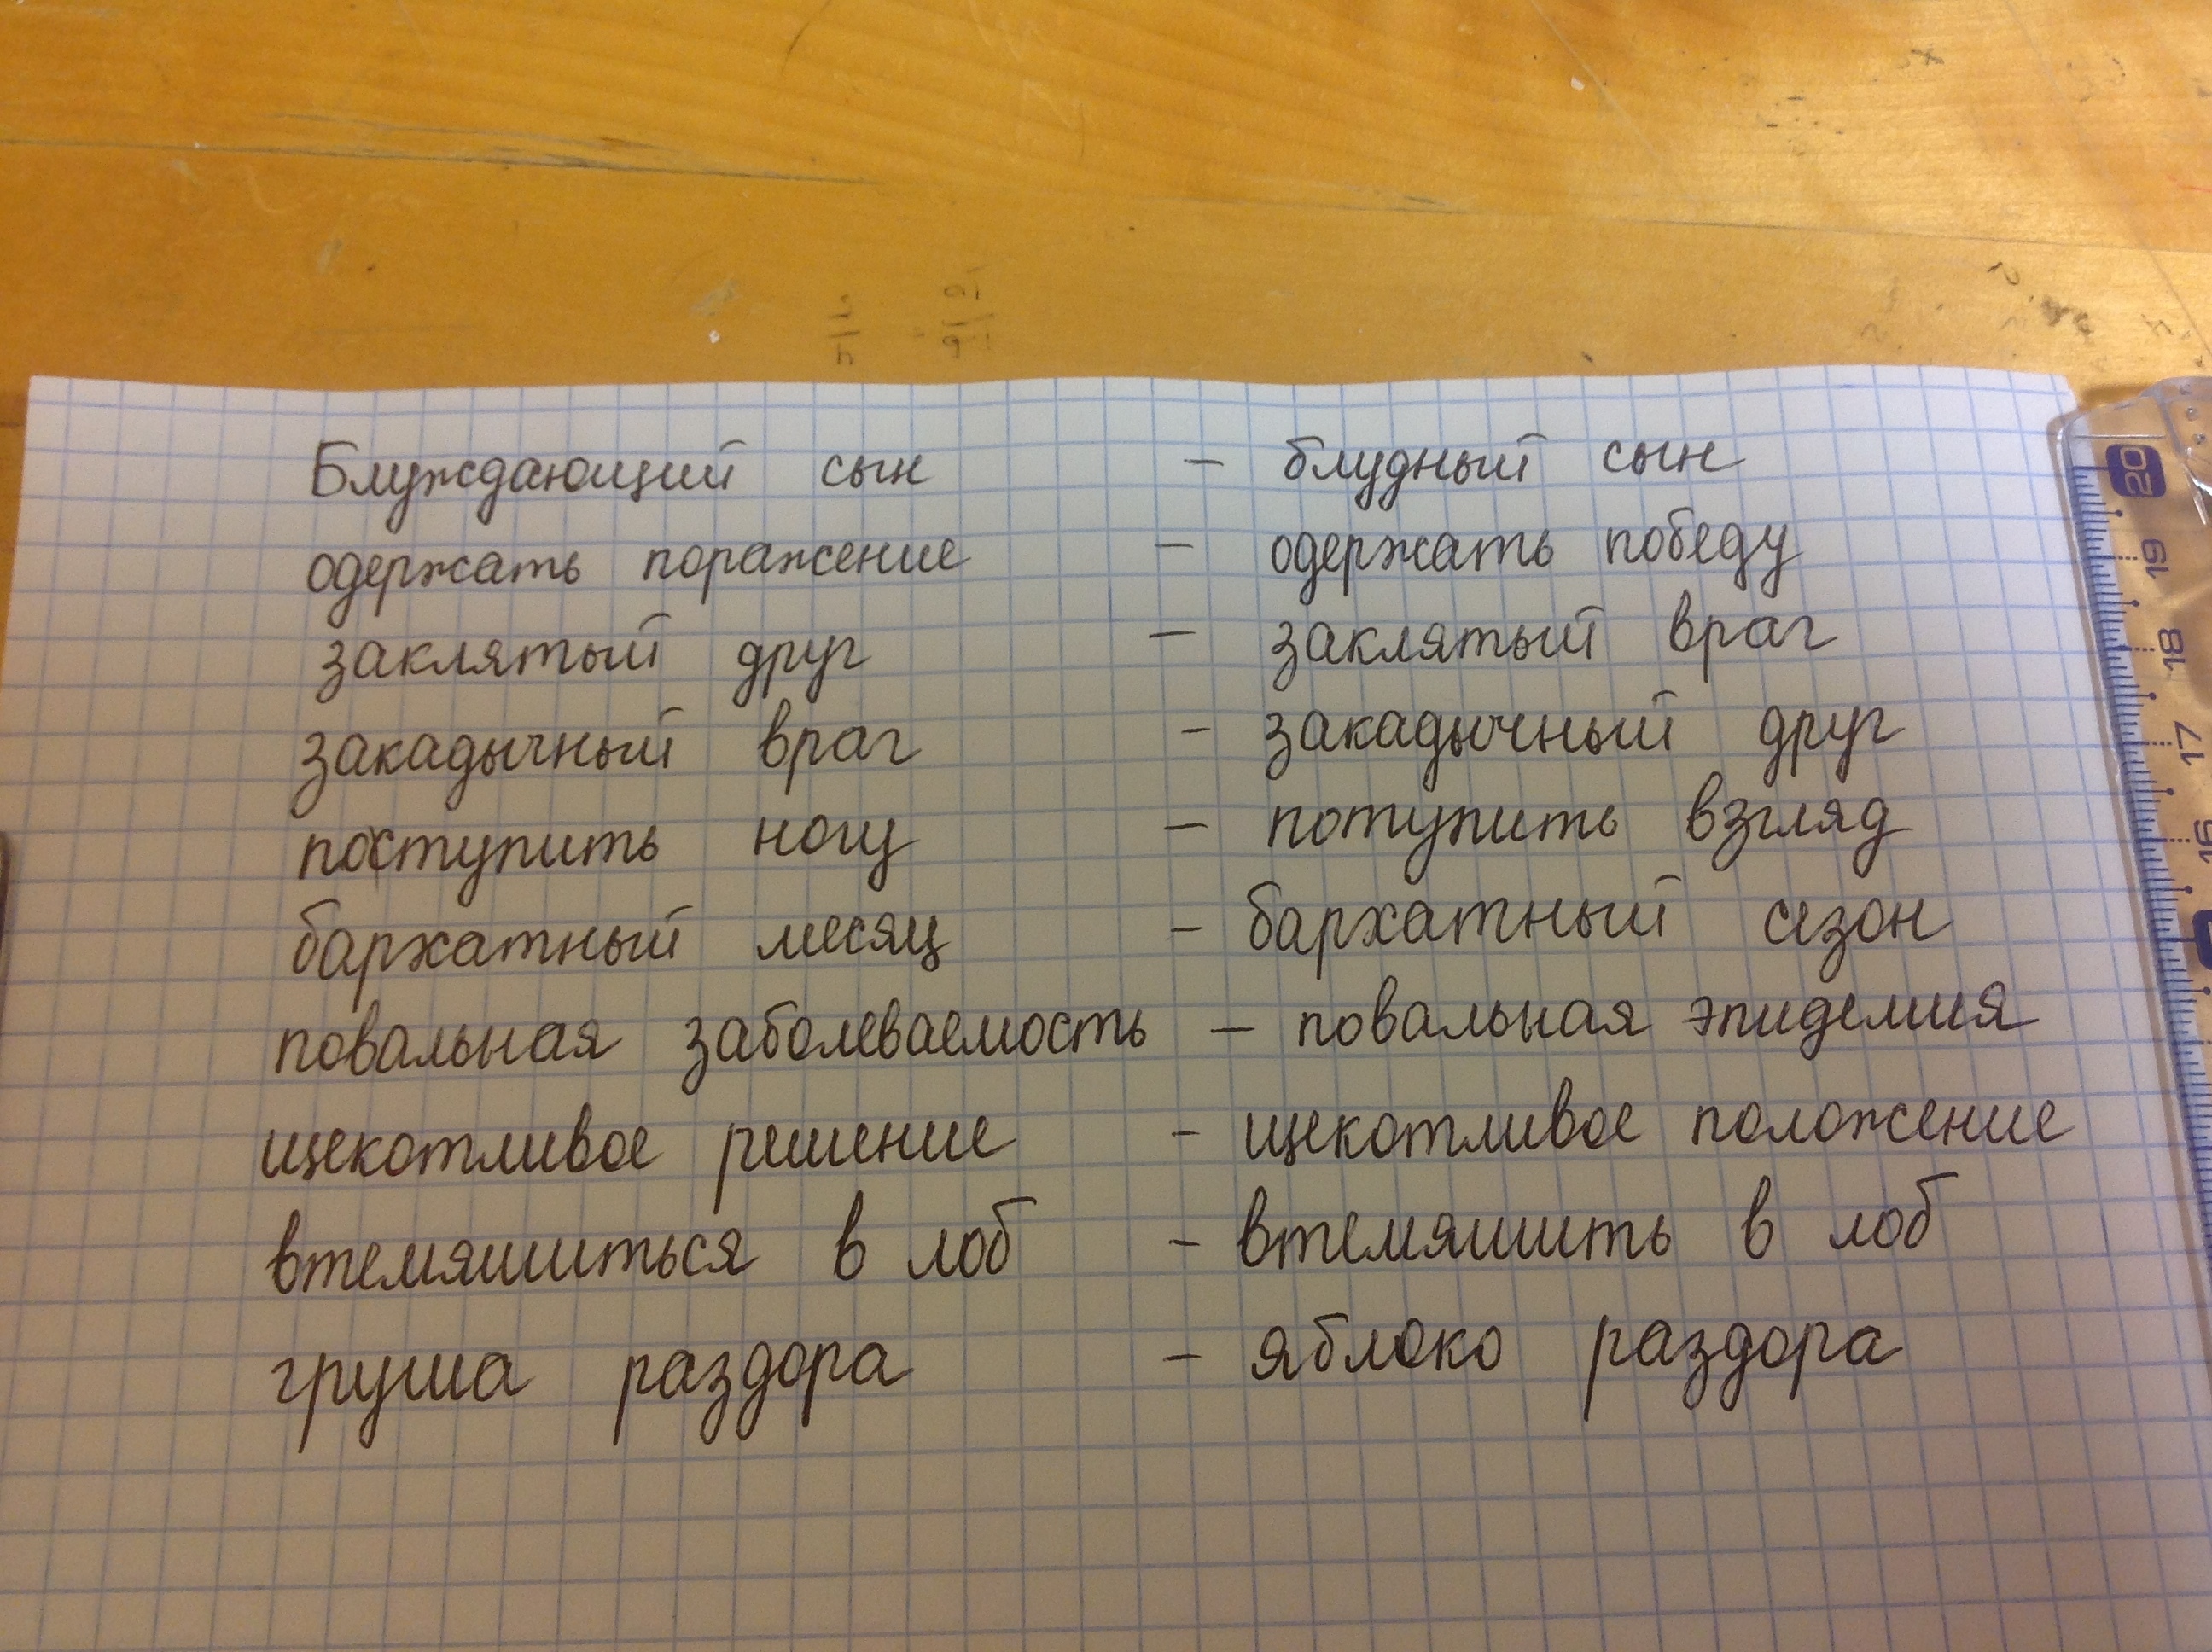 Блуждающий сын – блудный сын
одержать поражение – одержать победу
заклятый друг – заклятый враг
закадычный враг – закадычный друг
поступить ногу – потупить взгляд
бархатный месяц – бархатный сезон
повальная заболеваемость – повальная эпидемия
щекотливое решение – щекотливое положение
втемяшиться в лоб – втемяшить в лоб
груша раздора – яблоко раздора
20
19
18
17
16